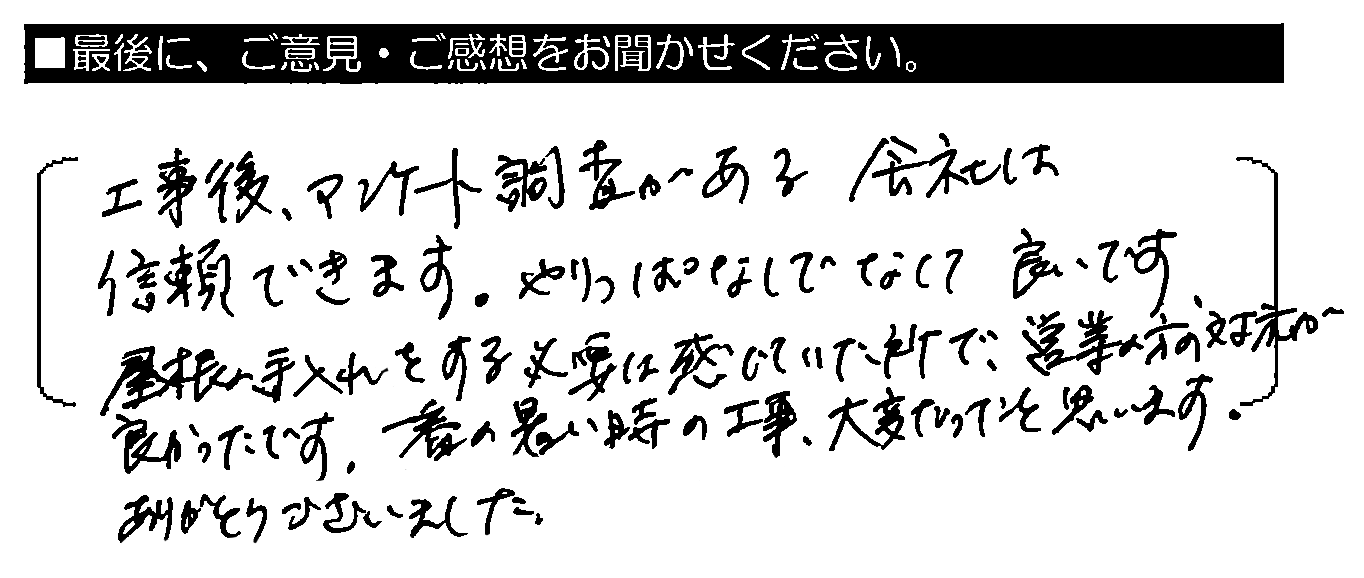 ■最後に、ご意見・ご感想をお聞かせください。
工事後、アンケート調査がある会社は
信頼できます。やりっぱなしでなくて良いです、
屋根の手入れをする必要は感じていた所で、営業の方の対応が
良かったです。一番の暑い時の工事、大変だったと思います。
ありがとうございました。